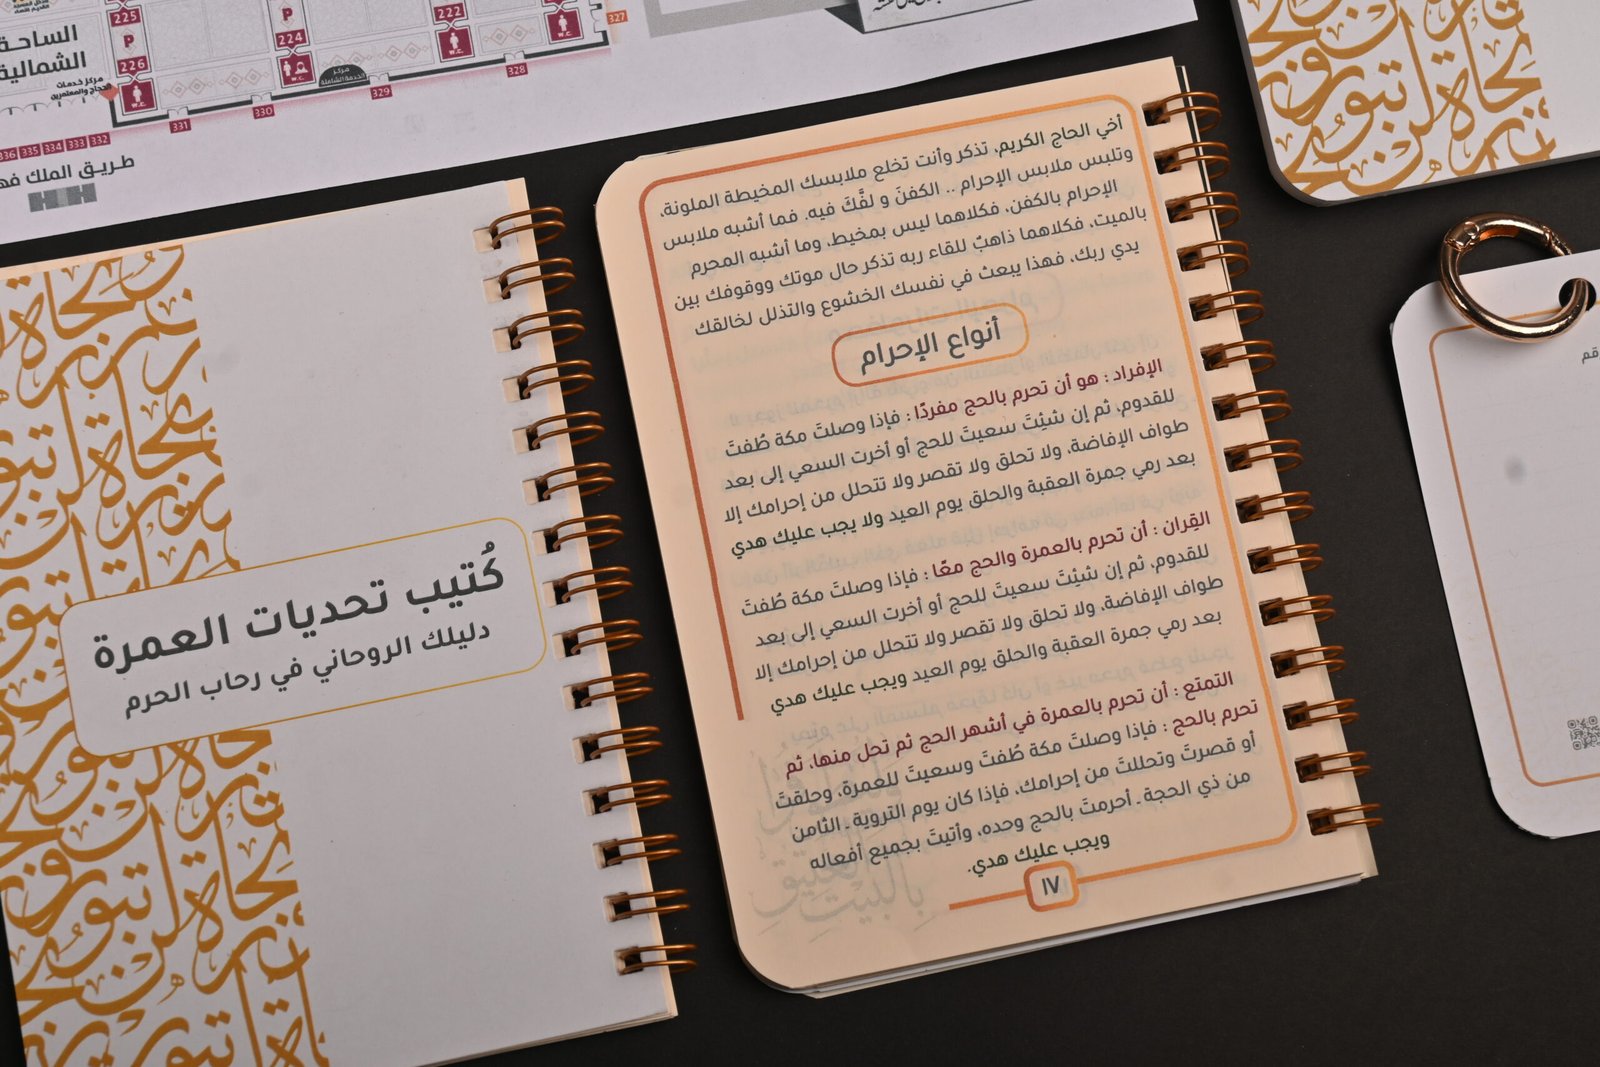 225
P
226
W.C.
P
224
W.C.
222
W.C.
W.C.
327
328
329
330
331
332
333
334
335
336
الساحة
الشمالية
مركز خدمات
الحجاج والمعتمرين
مركز
الخدمة الشاملة
طريق الملك فه
كُتيب تحديات العمرة
دليلك الروحاني في رحاب الحرم
أخي الحاج الكريم، تذكر وأنت تخلع ملابسك المخيطة الملونة،
وتلبس ملابس الإحرام .. الكفنَ و لفَّكَ فيه. فما أشبه ملابس
الإحرام بالكفن، فكلاهما ليس بمخيط، وما أشبه المحرم
بالميت، فكلاهما ذاهبٌ للقاء ربه تذكر حال موتك ووقوفك بين
يدي ربك، فهذا يبعث في نفسك الخشوع والتذلل لخالقك
أنواع الإحرام
الإفراد : هو أن تحرم بالحج مفردًا : فإذا وصلتَ مكة طُفتَ
للقدوم، ثم إن شئِتَ سعيتَ للحج أو أخرت السعي إلى بعد
طواف الإفاضة، ولا تحلق ولا تقصر ولا تتحلل من إحرامك إلا
بعد رمي جمرة العقبة والحلق يوم العيد ولا يجب عليك هدي
القِران : أن تحرم بالعمرة والحج معًا : فإذا وصلتَ مكة طُفتَ
للقدوم، ثم إن شئِتَ سعيتَ للحج أو أخرت السعي إلى بعد
طواف الإفاضة، ولا تحلق ولا تقصر ولا تتحلل من إحرامك إلا
بعد رمي جمرة العقبة والحلق يوم العيد ويجب عليك هدي
التمتع : أن تحرم بالعمرة في أشهر الحج ثم تحل منها، ثم
تحرم بالحج : فإذا وصلتَ مكة طُفتَ وسعيتَ للعمرة، وحلقتَ
أو قصرتَ وتحللتَ من إحرامك، فإذا كان يوم التروية ـ الثامن
من ذي الحجة ـ أحرمتَ بالحج وحده، وأتيتَ بجميع أفعاله
ويجب عليك هدي.
١٧